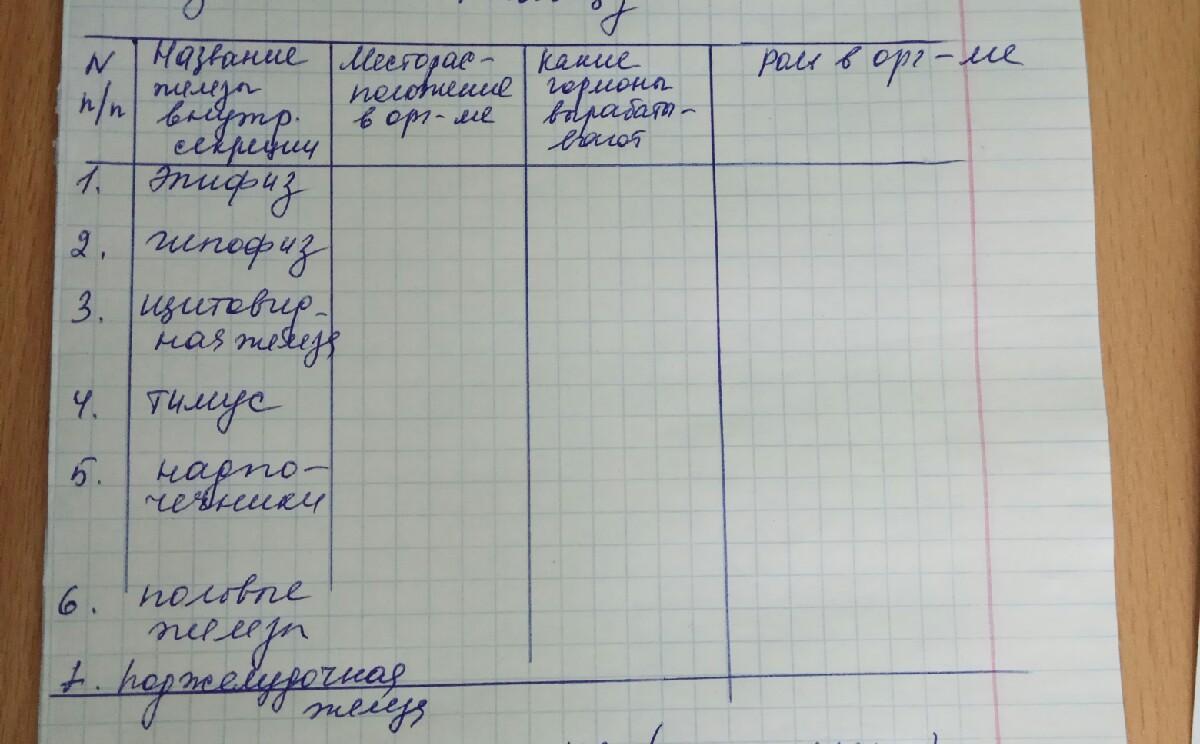 N п/п
Название железы внутр. секреции
Месторас- положение в орг-ме
какие гормоны вырабаты- вают
роль в орг-ме
1. Эпифиз
2. гипофиз
3. щитовид-
ная железа
4. тимус
5. надпо-
чечники
6. половые
железы
7. Поджелудочная
железа